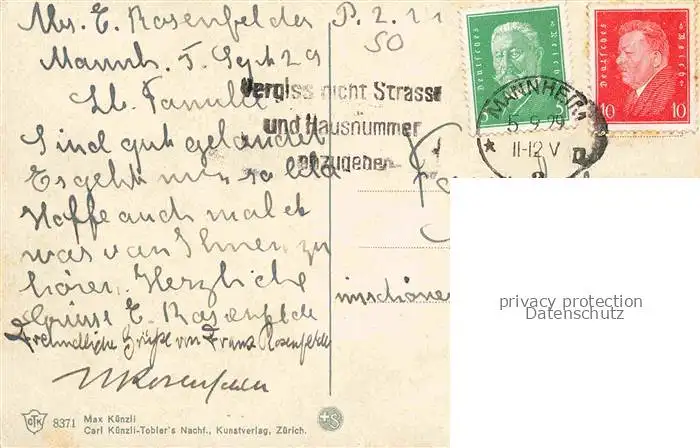 Mrs. E. Rosenfelder P. 2. 11
50
Mannh. 5. Sept 29
Lb. Familie
Sind gut gelandet
Es geht mir so lala
Hoffe auch mal et
was von Ihnen zu
hören. Herzliche
Grüsse E. Rosenfelde
Freundliche Grüße von Franz Rosenfelde
Rosenfelder
Vergiss nicht Strasse
und Hausnummer
anzugeben
Deutsches Reich
5
Deutsches Reich
10 10
MANNHEIM
5.9.29
11-12 V
* 2 D
privacy protection
Datenschutz
CTK 8371 Max Künzli
Carl Künzli-Tobler's Nachf., Kunstverlag, Zürich.
+S